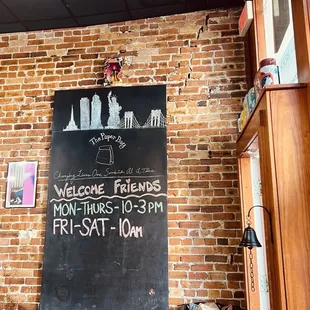 The Paper Bag
Changing Lives One Sandwich At A Time
WELCOME FRIENDS
MON-THURS-10-3PM
FRI-SAT-10AM